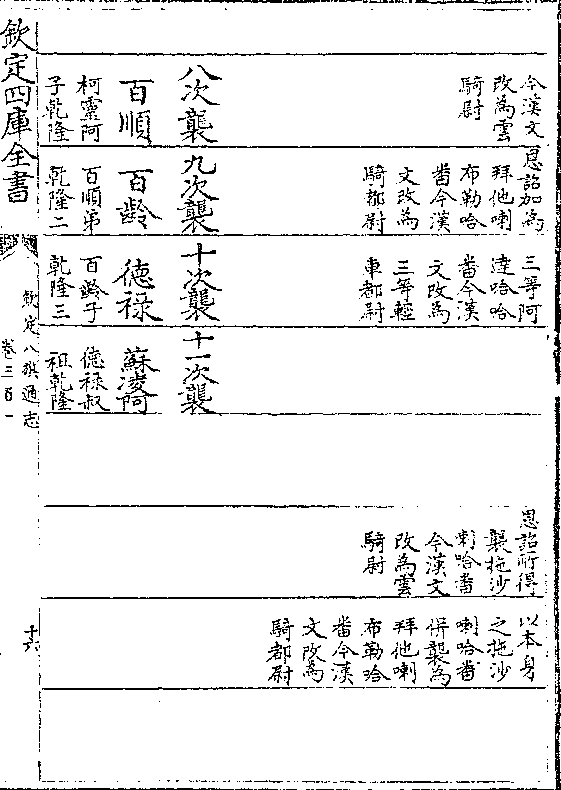 今漢文
改為雲
騎尉
恩詔加為
拜他喇
布勒哈
畨今漢
文改為
騎都尉
三等阿
達哈哈
畨今漢
文改為
三等輕
車都尉
恩詔所得
襲拖沙
喇哈畨
今漢文
改為雲
騎尉
以本身
之拖沙
喇哈畨
併襲為
拜他喇
布勒哈
畨今漢
文改為
騎都尉
八次襲
百順
柯靈阿
子乾隆
九次襲
百齡
百順弟
乾隆二
十次襲
德禄
百齡子
乾隆三
十一次襲
蘇凌阿
德禄叔
祖乾隆
欽定四庫全書
欽定八旗通志
卷三百一
十六